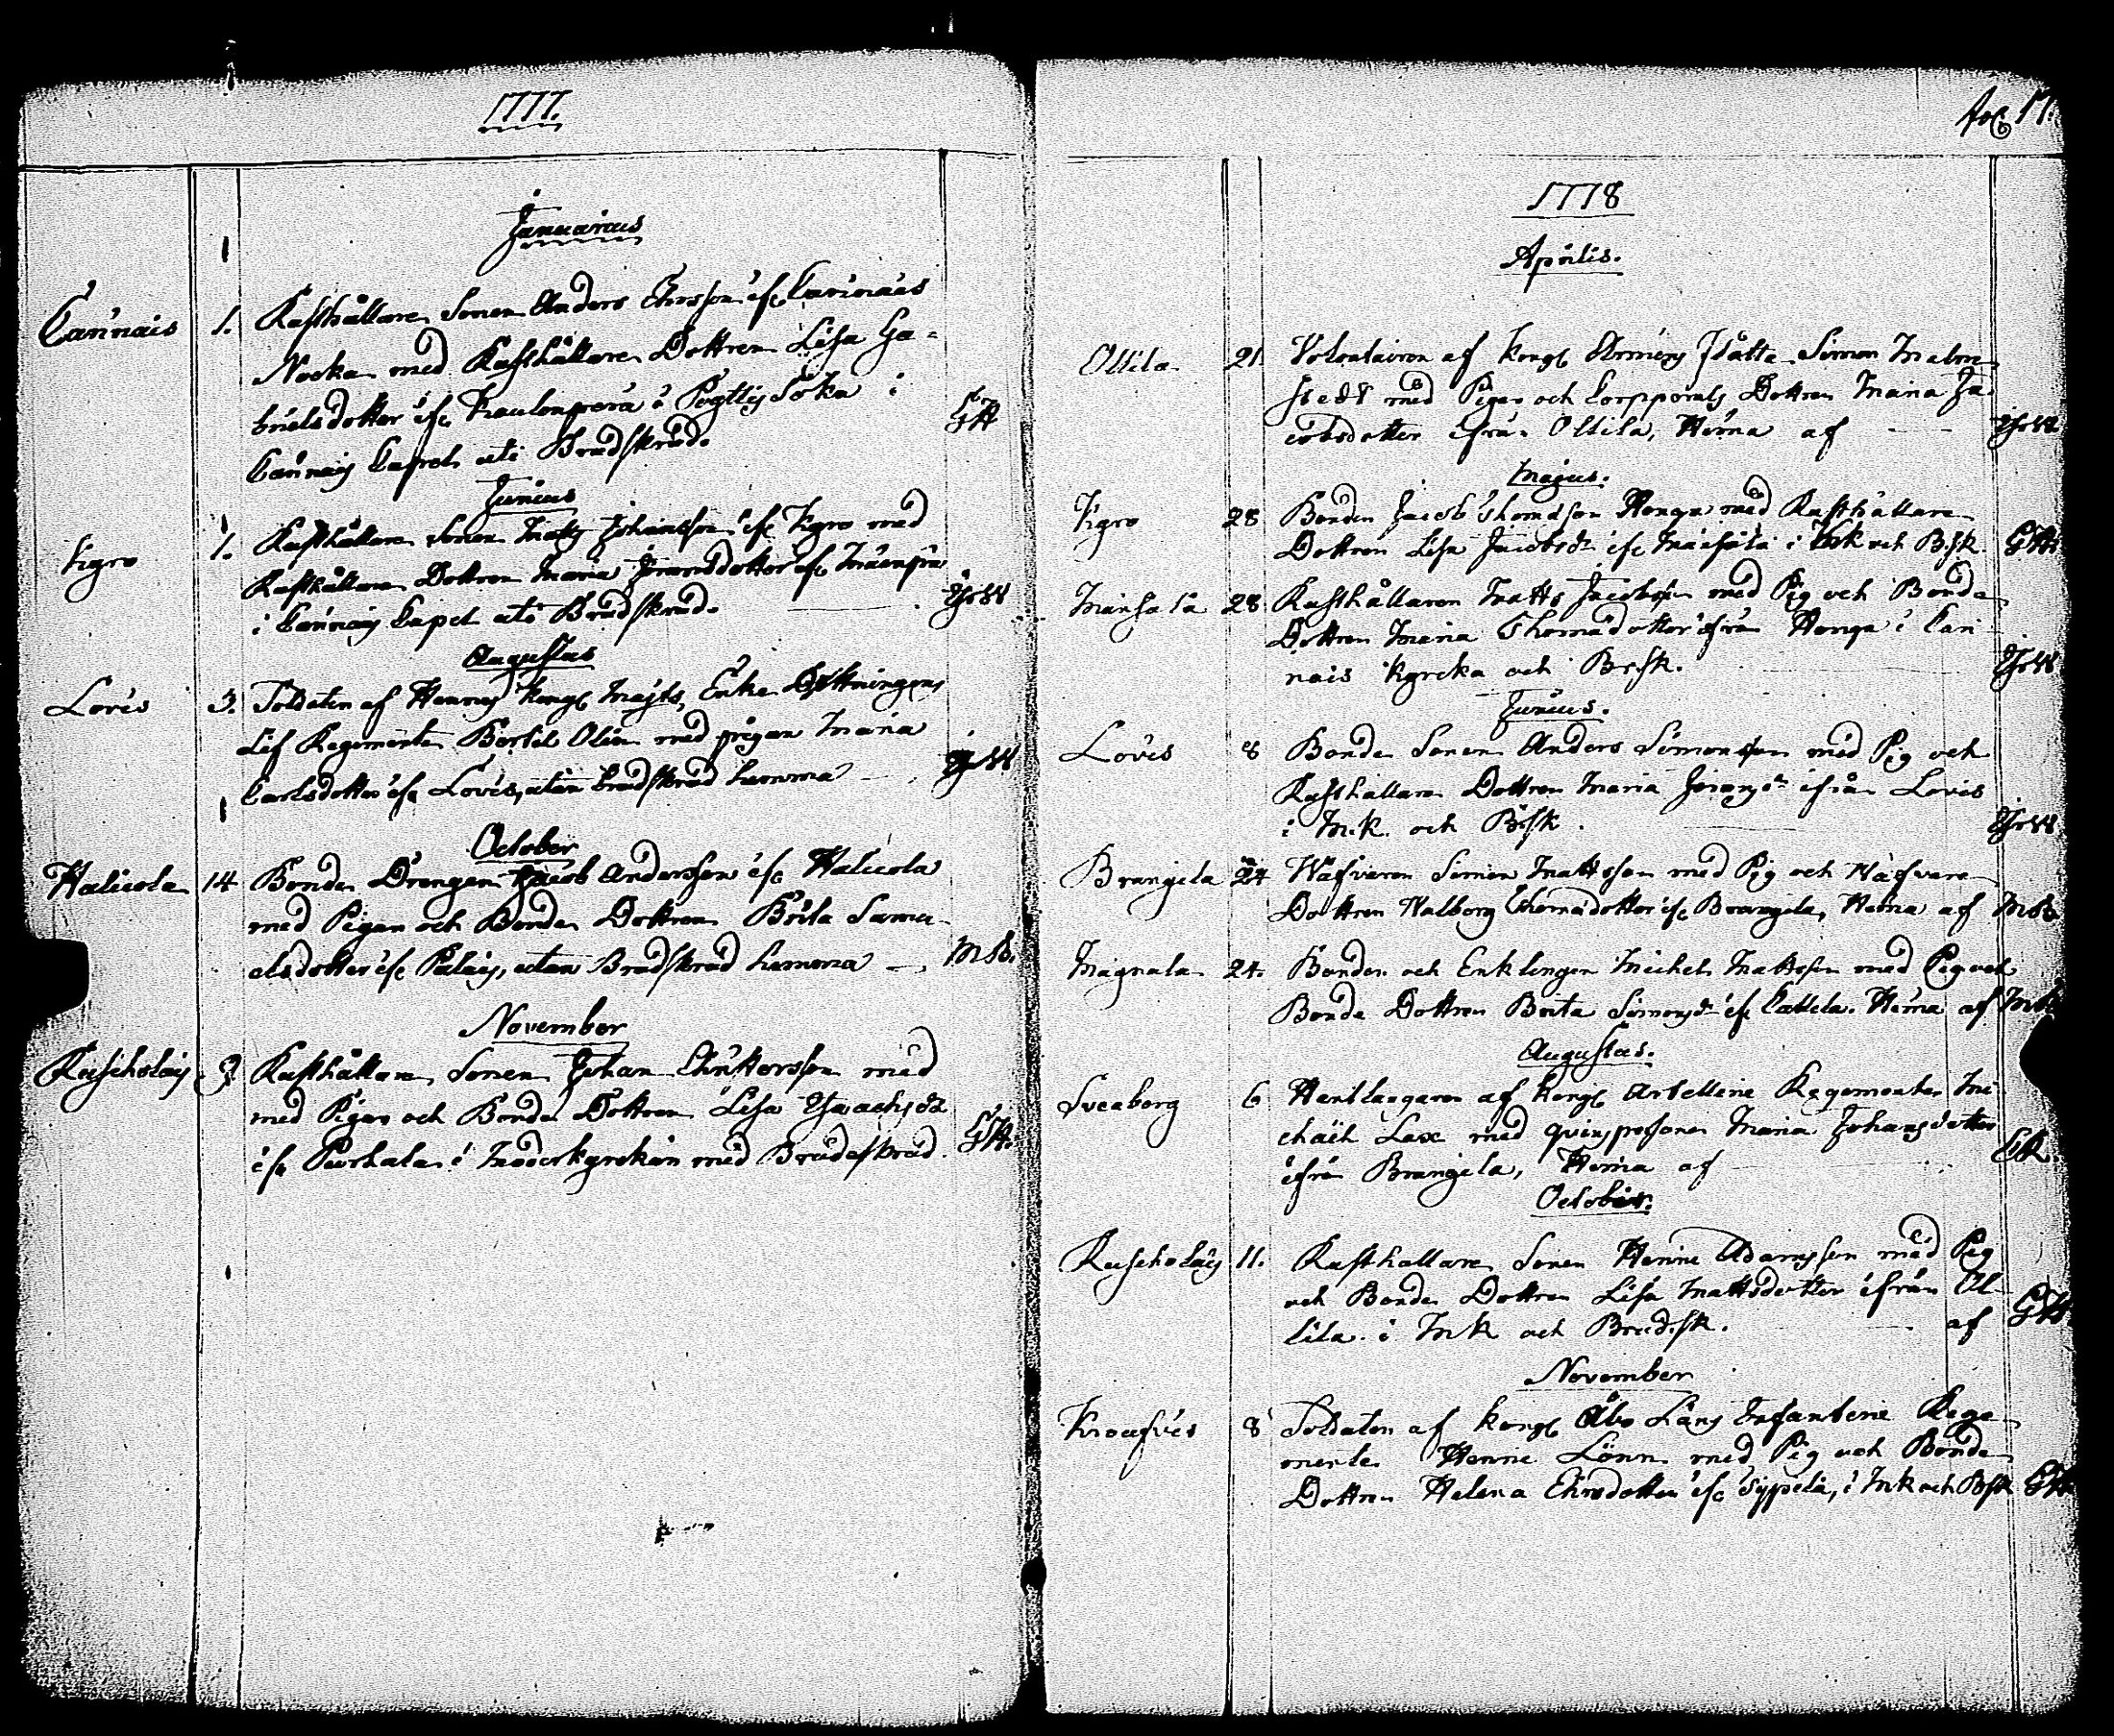 1777.
Januarius
Cannais 1. Rusthållare Sonen Anders Ehrsson ifr Carinais
Nocka med Rusthållare Dottren Lisa Ga-
brielsdotter ifr i
Cannais Capel uti Brudskrud. GH
Junius
Kgro 1. Rusthållare Sonen Matts Johansson ifr Kgro med
Rusthållare Dottren Maria ifr
i Cannais Capel uti Brudskrud.
Augustus
Lovis 3. Soldaten af Hennes Kongl Majts Enke Drottningens
Lif Regemente Bertil Olin med pigan Maria
Carlsdotter ifr Lovis, utan brudskrud hemma
October
Halicola 14 Bonde Drengen Jacob Andersson ifr Halicola
med Pigan och Bonde Dottren Brita Samu-
elsdotter ifr Palais, utan Brudskrud hemma MB.
November
Ruscholais 9 Rusthållare Sonen Johan Christersson med
med Pigan och Bonde Dottren Lisa Isaachsdr
ifr Purhala i Moderkyrckan med Brudeskrud. GH.
Fol 17.
1778
Aprilis.
Ollila 21 Volontairen af Kongl Armens Flåtta Simon Malm-
stedt med Pigan och Corpporals Dottren Maria Ja-
cobsdotter ifrån Ollila, Hema af
Majus.
Kgro 28 Bonden Jacob Thomasson Honga med Rusthållare
Dottren Lisa Jacobsdr ifr i och Bsk. GH.
28 Rusthållaren Matts Jacobsson med Pig och Bonde
Dottren Maria Thomadotter ifrån Honga i Can-
nais Kyrcka och Brsk.
Junius.
Lovis 8 Bonde Sonen Anders Simonsson med Pig och
Rusthållare Dottren Maria ifrån Lovis
i M.K. och Brsk.
Brangila 24 Wäfvaren Simon Mattsson med Pig och Wäfvare
Dottren Walborg Thomadotter ifr Brangila, Hema af MB.
Magnala 24. Bonden och Enklingen Michel Mattsson med Pig och
Bonde Dottren Brita Simonsdr ifr Cattila. Hema af
Augustus.
Sveaborg 6 Hantlangaren af Kongl Artellerie Regementet Mi-
chaël Lax med qvinspersonen Maria Johansdotter
ifrån Brangila, Hema af
October.
Ruscholais 11. Rusthållare Sonen Henric Adamsson med Pig
och Bonde Dottren Lisa Mattsdotter ifrån Ol-
lila i MK och Brudsk. af GH.
November
Kroufvis 8 Soldaten af Kongl Åbo Läns Infanterie Rege-
mente Henric Lönn med Pig och Bonde
Dottren Helena Ehrsdotter ifr Syppila, i MK och Bsk GH.